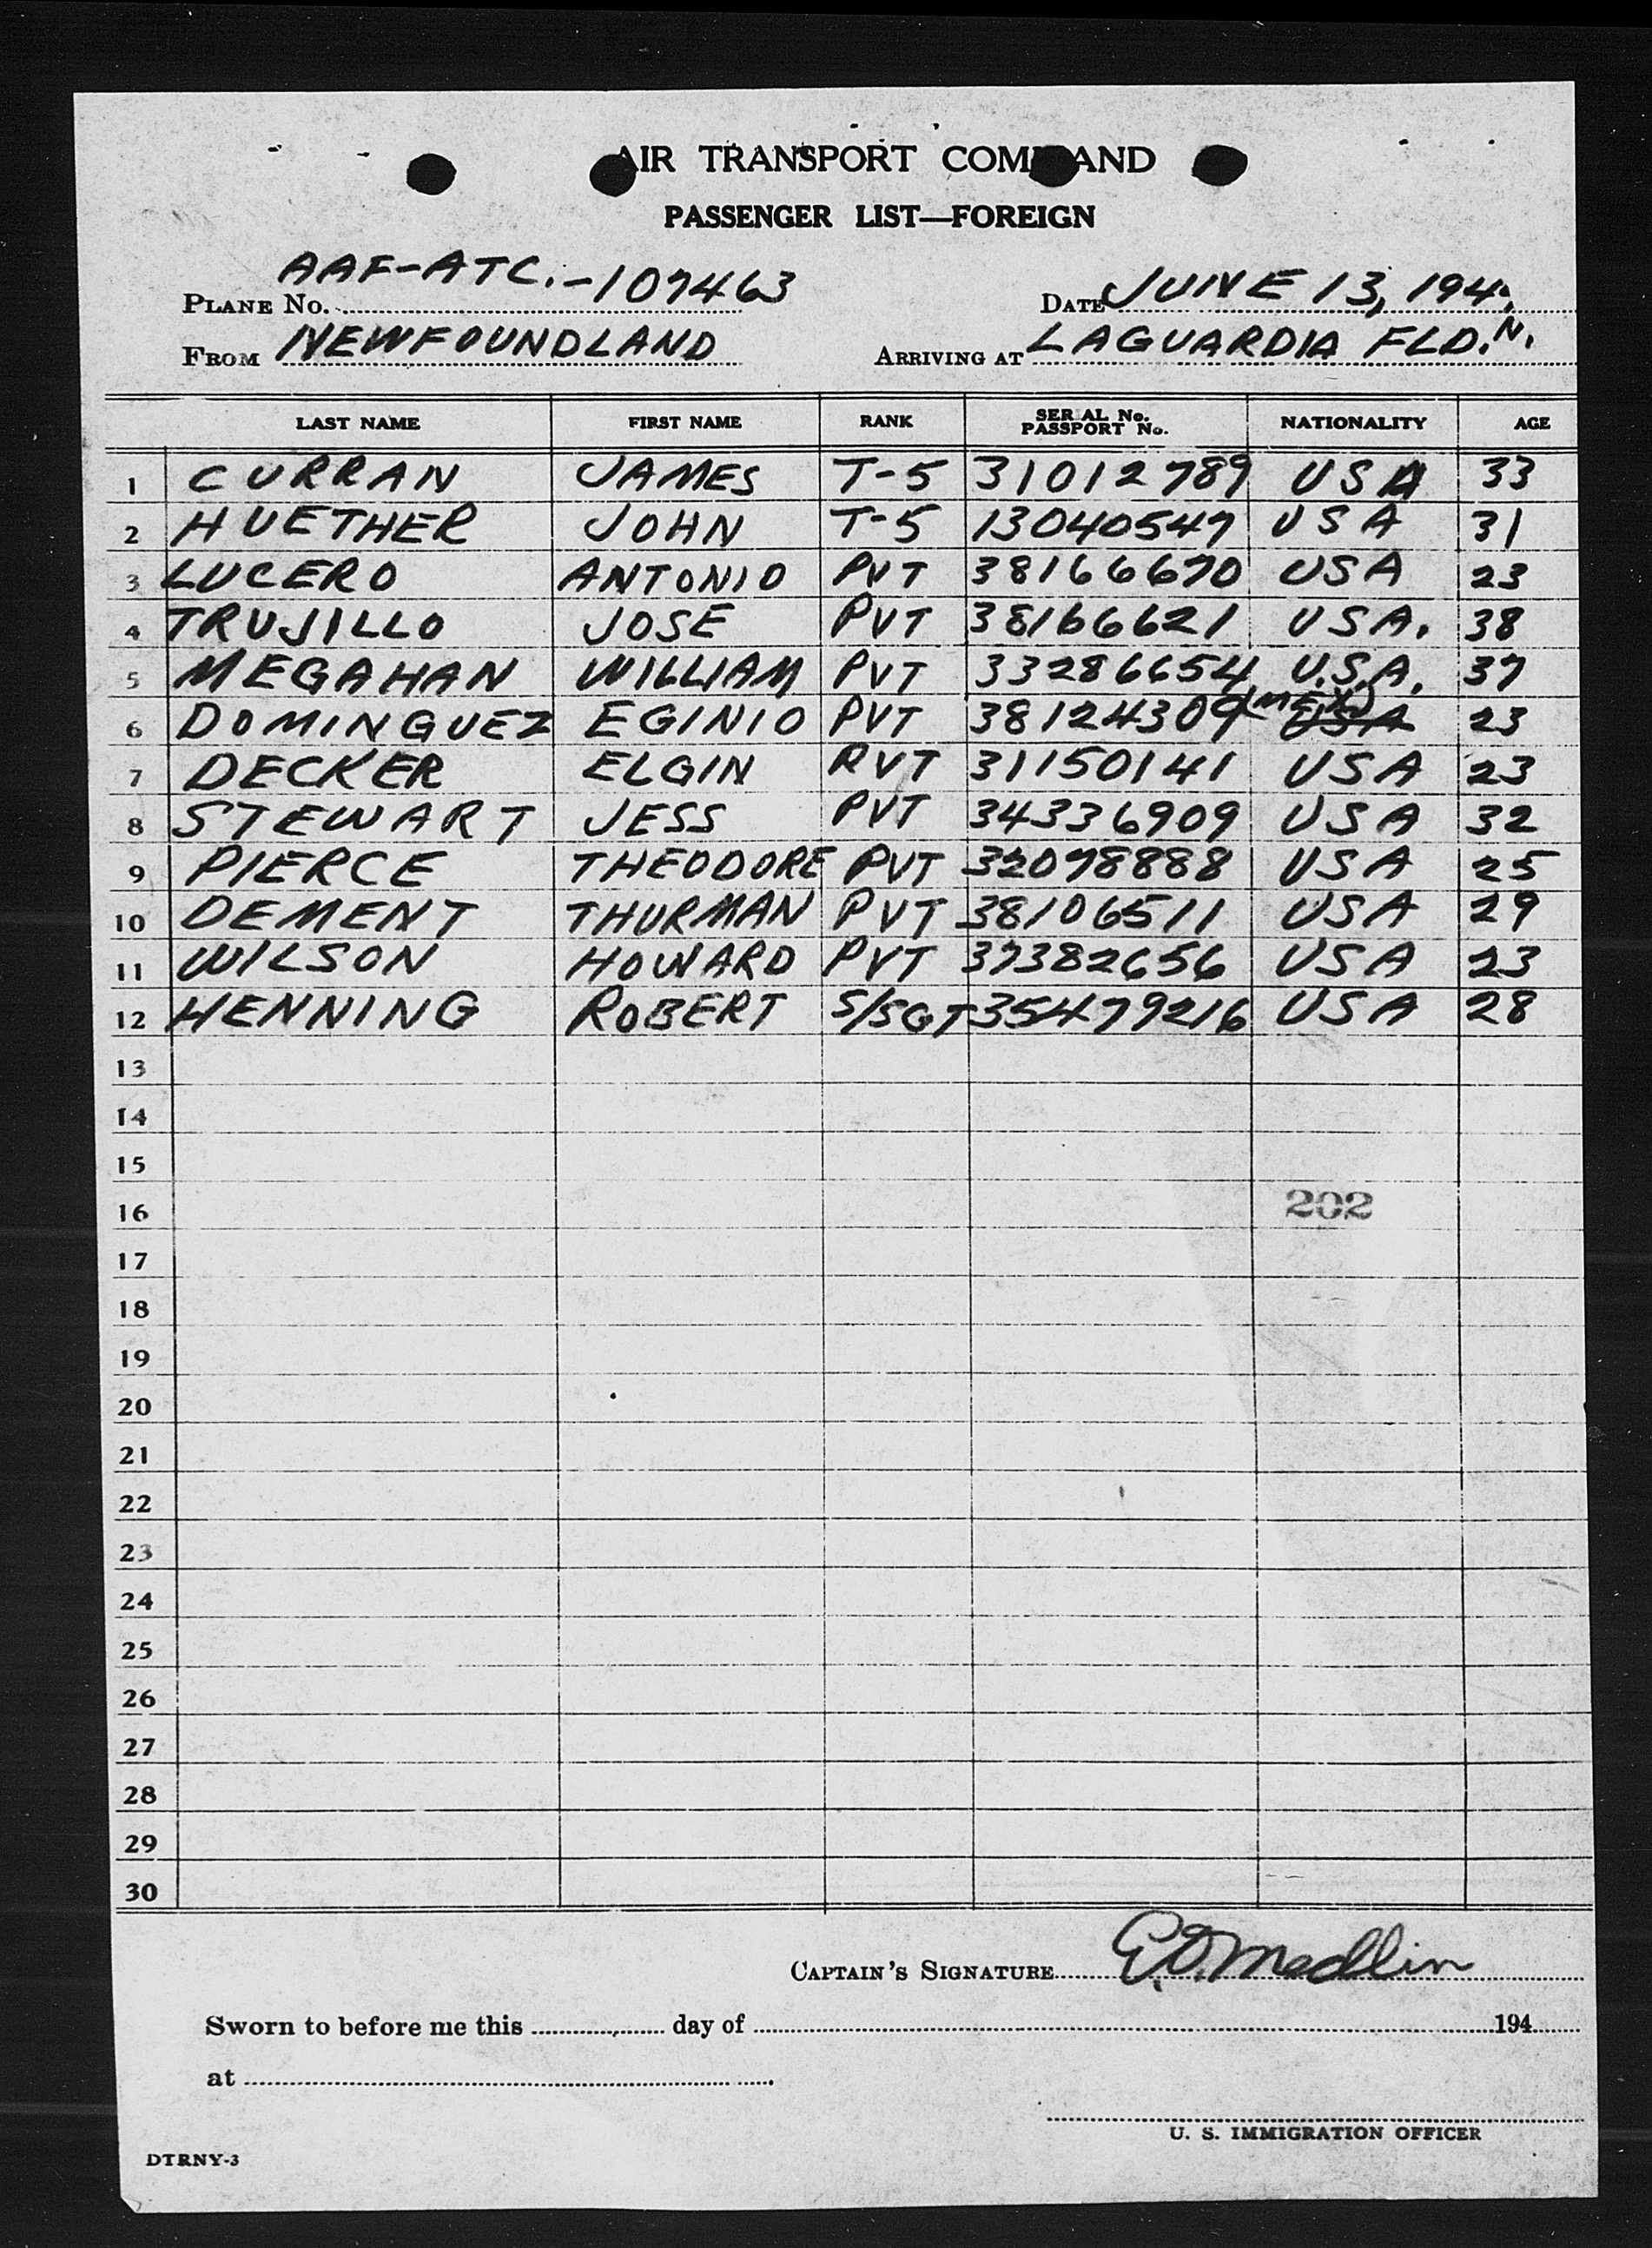 AIR TRANSPORT COMMAND
PASSENGER LIST—FOREIGN
PLANE No. AAF-ATC.-107463 DATE JUNE 13, 194
FROM NEWFOUNDLAND ARRIVING AT LAGUARDIA FLD. N.
LAST NAME FIRST NAME RANK SERIAL No. PASSPORT No. NATIONALITY AGE
1 CURRAN JAMES T-5 31012789 USA 33
2 HUETHER JOHN T-5 13040547 USA 31
3 LUCERO ANTONIO PVT 38166670 USA 23
4 TRUJILLO JOSE PVT 38166621 USA. 38
5 MEGAHAN WILLIAM PVT 33286654 U.S.A. 37
6 DOMINGUEZ EGINIO PVT 38124309 (MEX) USA 23
7 DECKER ELGIN PVT 31150141 USA 23
8 STEWART JESS PVT 34336909 USA 32
9 PIERCE THEODORE PVT 32078888 USA 25
10 DEMENT THURMAN PVT 38106511 USA 29
11 WILSON HOWARD PVT 37382656 USA 23
12 HENNING ROBERT S/SGT 35479216 USA 28
13
14
15
16 202
17
18
19
20
21
22
23
24
25
26
27
28
29
30
CAPTAIN'S SIGNATURE E.O. Medlin
Sworn to before me this day of 194
at
U. S. IMMIGRATION OFFICER
DTRNY-3